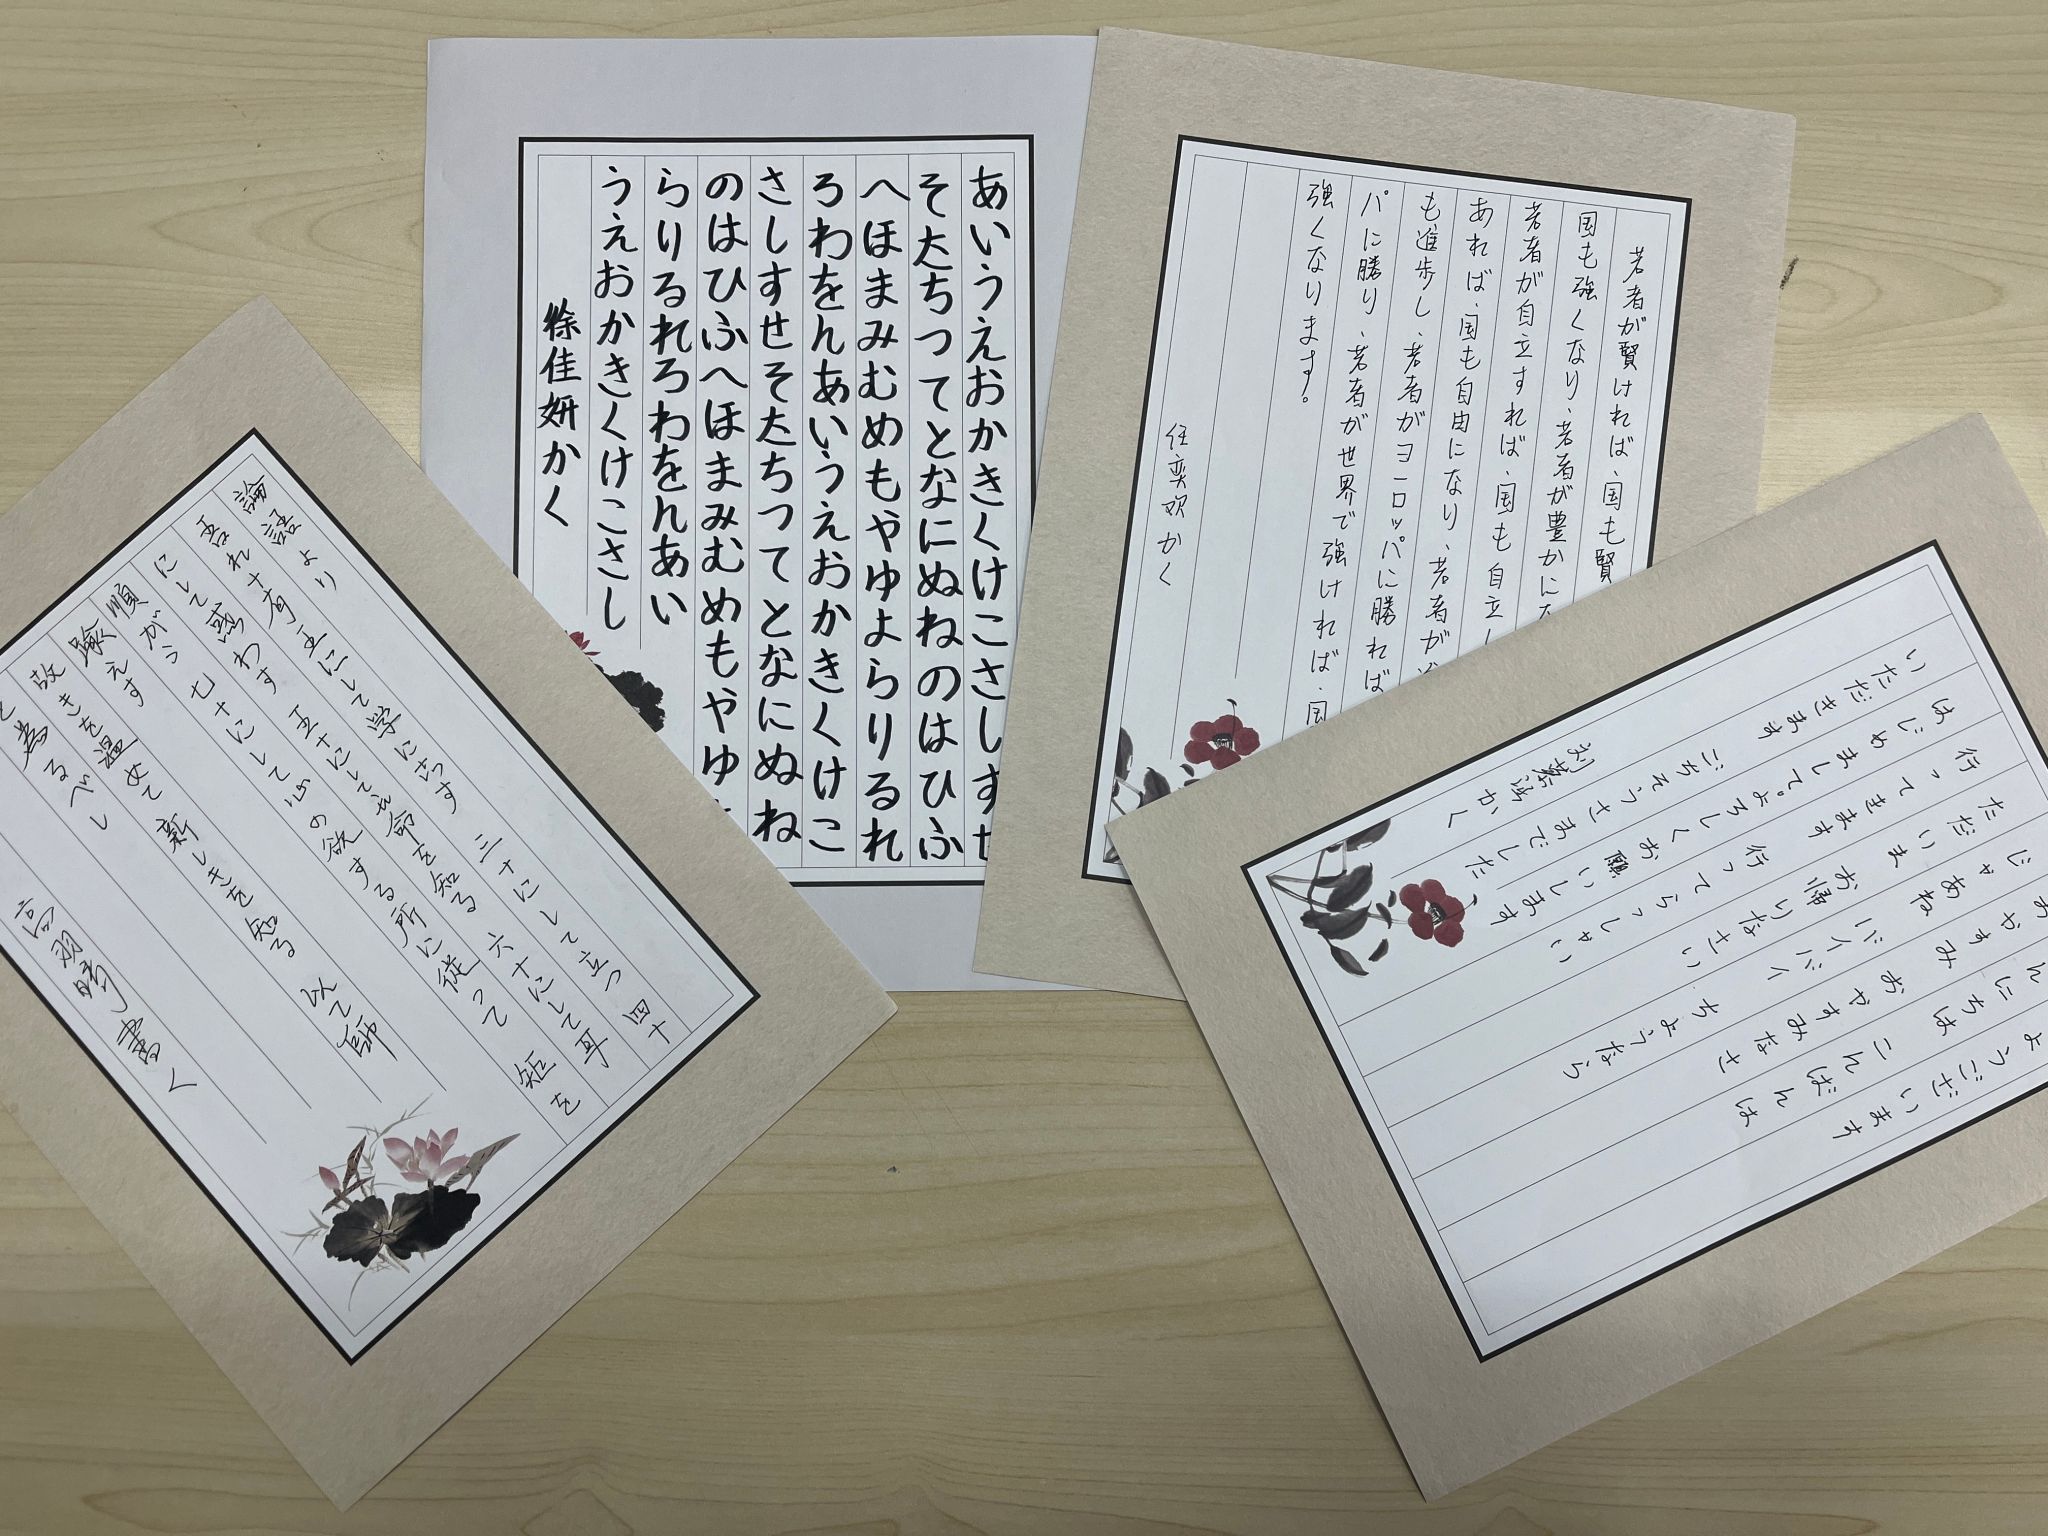 論語より
吾れ十有五にして学に志す 三十にして立つ 四十
にして惑わす 五十にして 命を知る 六十にして耳
順がう 七十にして心の欲する所に従って 矩を
踰えす
故きを温めて 新しきを知る 以て師
と為るべし
高羽 書く
あいうえおかきくけこさしすせ
そたちつてとなにぬねのはひふ
へほまみむめもやゆよらりるれ
ろわをんあいうえおかきくけこ
さしすせそたちつてとなにぬね
のはひふへほまみむめもやゆ
らりるれろわをんあい
うえおかきくけこさし
徐佳妍かく
若者が賢ければ、国も賢
国も強くなり、若者が豊かに
若者が自立すれば、国も自立
あれば、国も自由になり、若者が
も進歩し、若者がヨーロッパに勝れば
パに勝り、若者が世界で強ければ、国
強くなります。
任奕欢かく
ようございます
んにちは こんばんは
おやすみ おやすみなさ
じゃあね バイバイ さようなら
ただいま お帰りなさい
行ってきます 行ってらっしゃい
はじめまして。よろしくお願いします
いただきます ごちそうさまでした
刘 かく